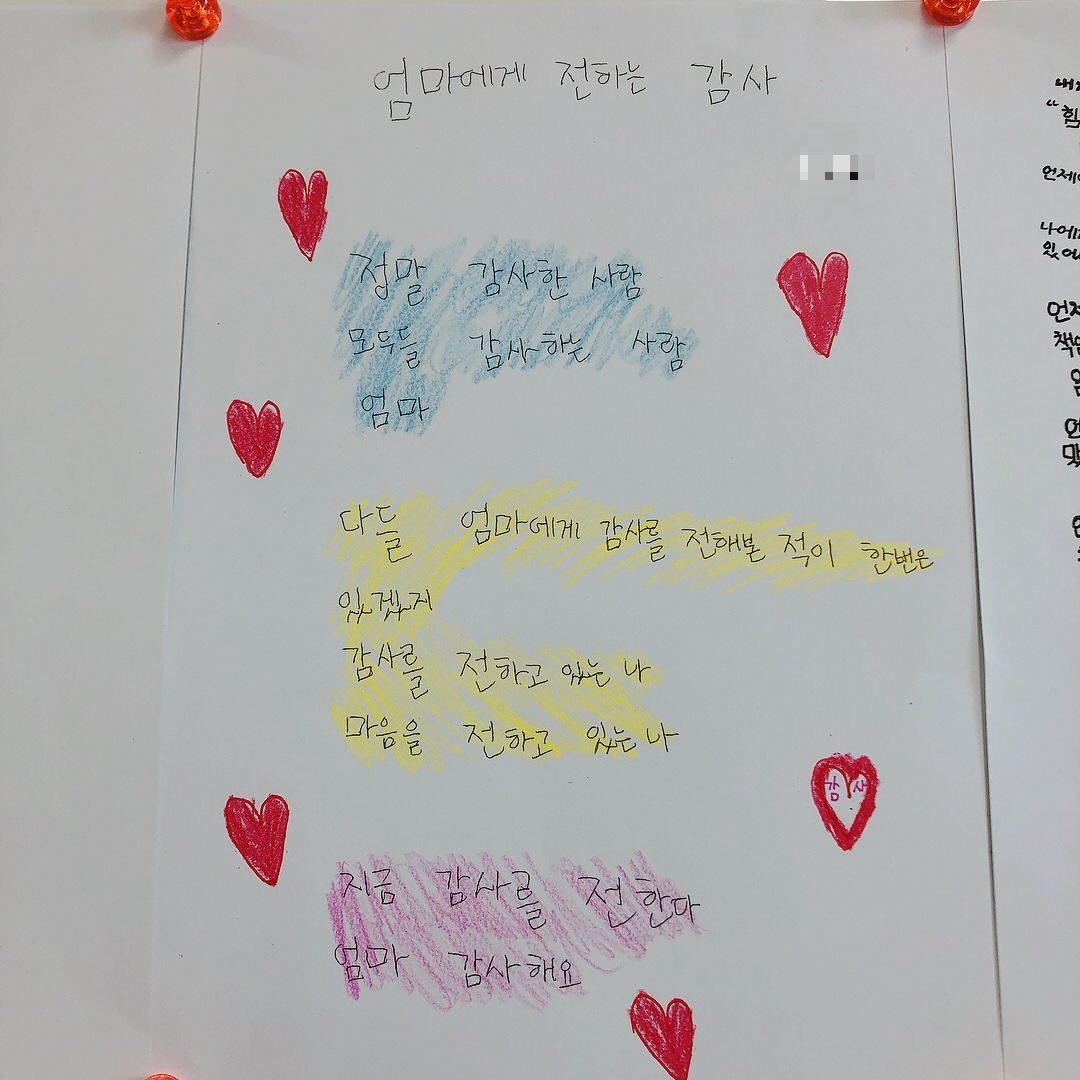 엄마에게 전하는 감사
정말 감사한 사람
모두들 감사하는 사람
엄마
다들 엄마에게 감사를 전해본 적이 한번은
있겠지
감사를 전하고 있는 나
마음을 전하고 있는 나
감사
지금 감사를 전한다
엄마 감사해요
언제
나에게